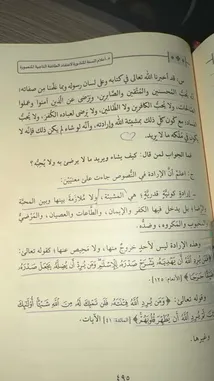 س. قد أخبرنا الله تعالى في كتابه وعلى لسان رسوله وبما علمنا من صفاته؛
يحب المحسنين والمتقين والصابرين، ويرضى عن الذين آمنوا وعملوا
ولا يحب الكافرين ولا الظالمين، ولا يرضى لعباده الكفر، ولا يحب
الفساد، مع كون كل ذلك بمشيئة الله وإرادته، وأنه لو شاء لم يكن ذلك فإنه لا
يكون في ملكه ما لا يريد.
فما الجواب لمن قال: كيف يشاء ويريد ما لا يرضى به ولا يُحِبُّه؟
ج. اعلم أن الإرادة في النصوص جاءت على معنيين:
إرادة كونية قدرية؛ هي المشيئة، ولا ملازمة بينها وبين المحبة
والرضا؛ بل يدخل فيها الكفر والإيمان، والطاعات والعصيان، والمرضي
المحبوب والمكروه، وضده.
وهذه الإرادة ليس لأحد خروج منها، ولا محيص عنها؛ كقوله تعالى:
﴿فمن يرد الله أن يهديه يشرح صدره للإسلام ومن يرد أن يضله يجعل صدره
ضيقا حرجا﴾ [الأنعام: ١٢٥].
وقوله تعالى: ﴿ومن يرد الله فتنته فلن تملك له من الله شيئا أولئك
الذين لم يرد الله أن يطهر قلوبهم﴾ [المائدة: ٤١] الآيات.
وغيرها.
٤٩٥